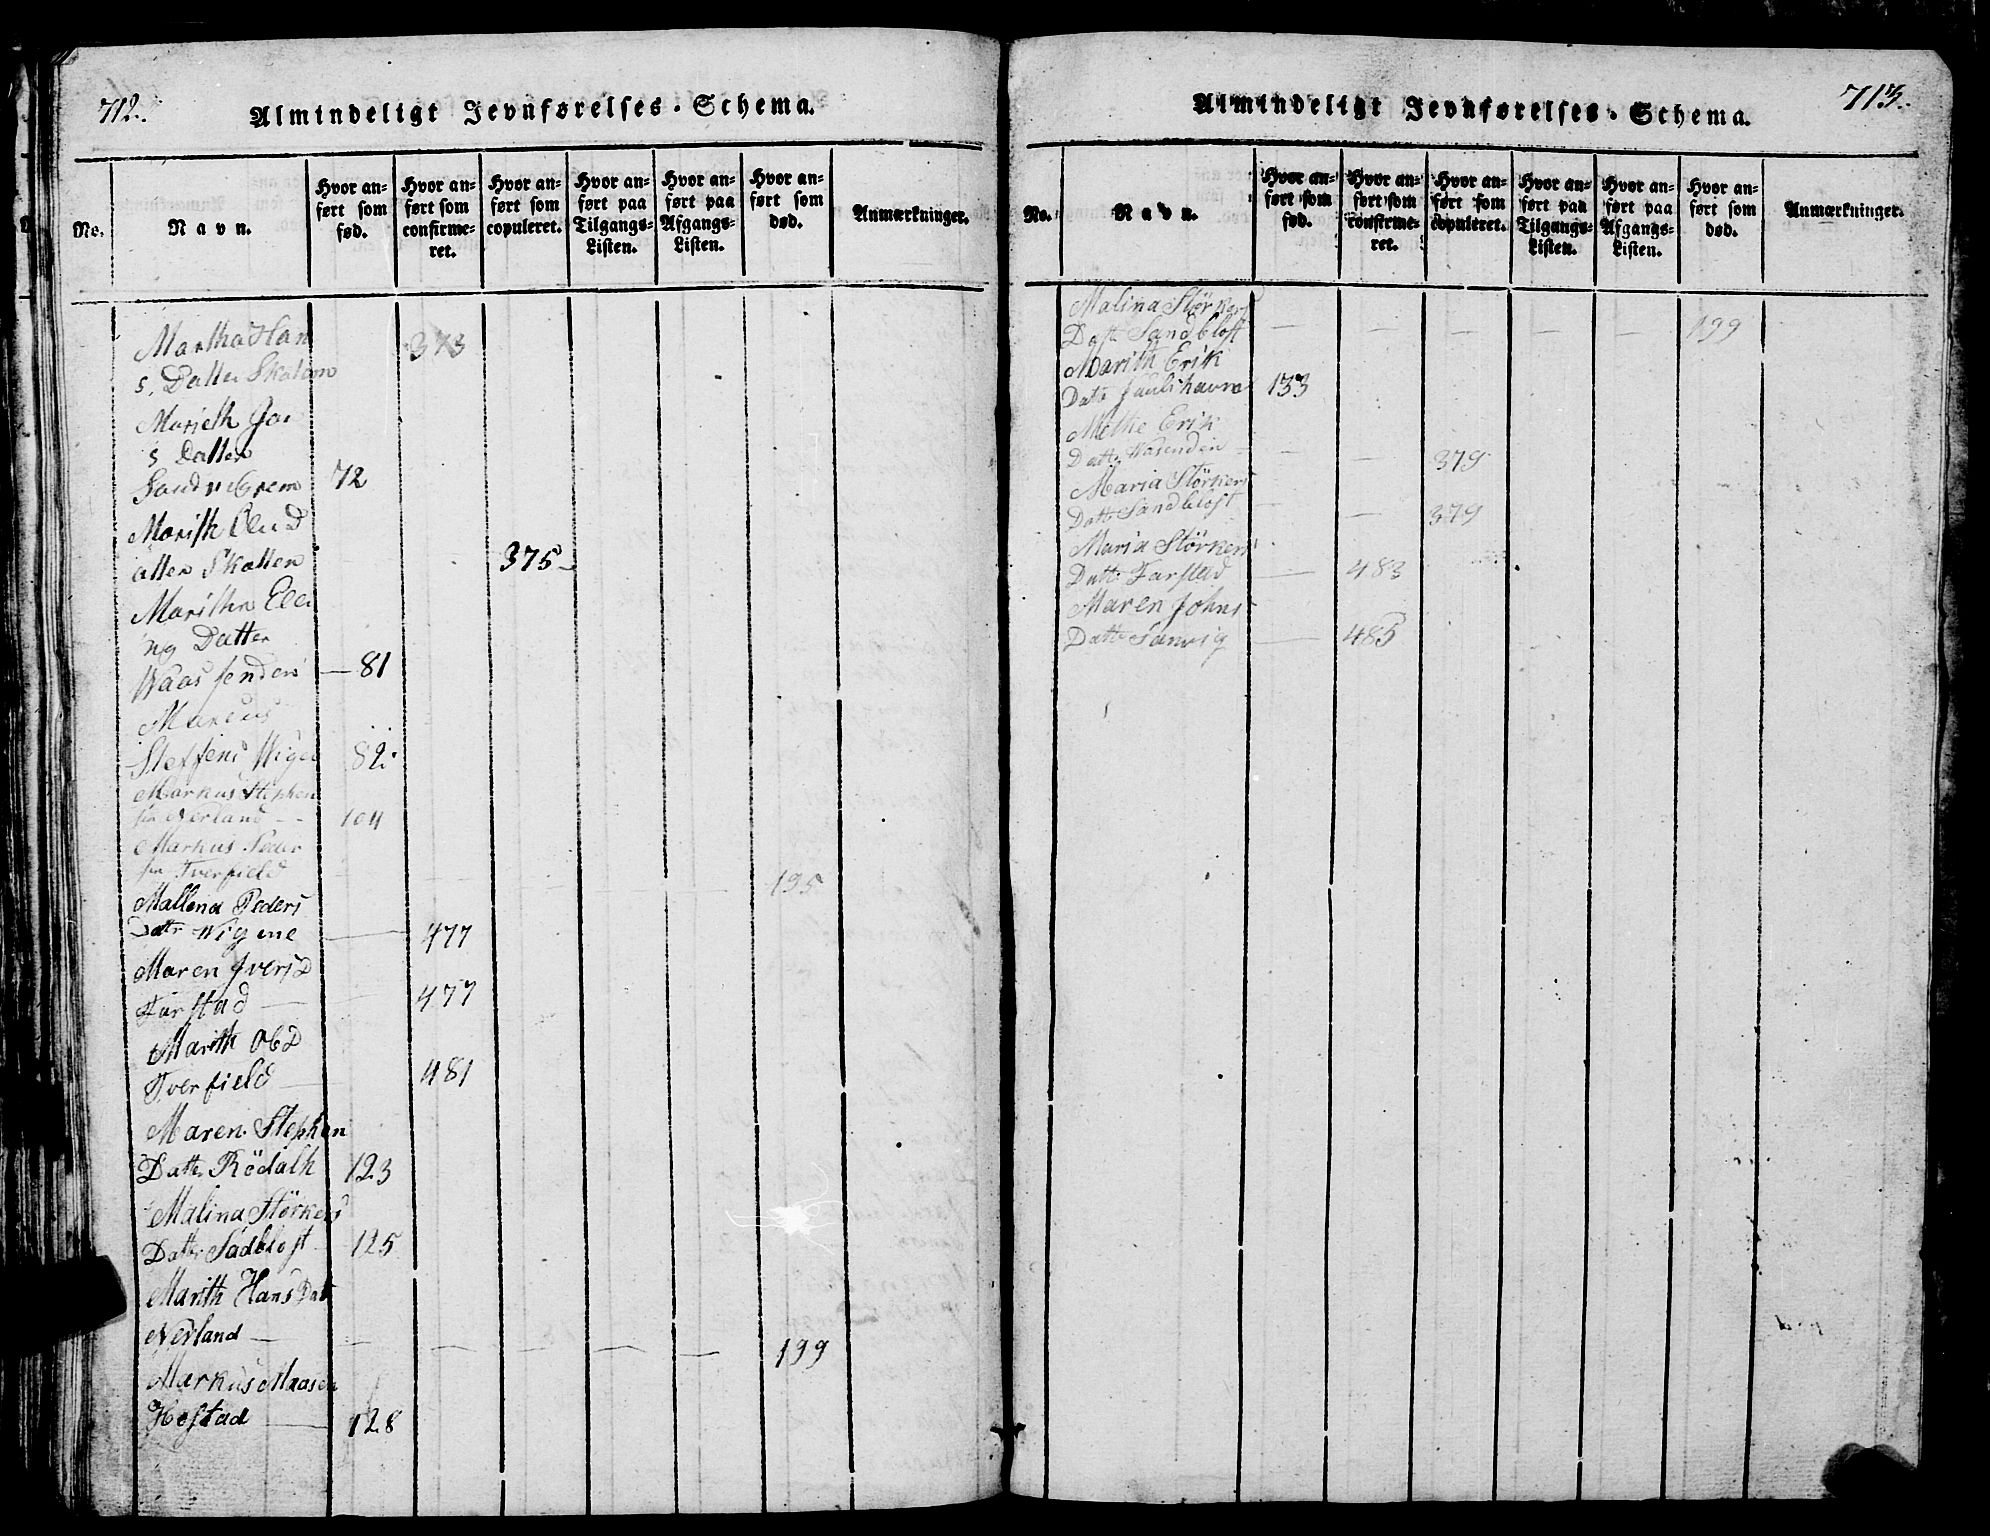 712.
Almindeligt Jevnførelses-Schema.
No.
Navn.
Hvor an-
ført som
fød.
Hvor an-
ført som
confirme-
ret.
Hvor an-
ført som
copuleret.
Hvor an-
ført paa
Tilgangs-
Listen.
Hvor an-
ført paa
Afgangs-
Listen.
Hvor an-
ført som
død.
Anmærkninger.
Martha Han 373
s. Datter
Marieth
s Datter
72
Marith
atter Skatten 375
ng Datter
Waassenden — 81
Marcus
Steffens 82.
Markus Stephen
sen Nerland - - 104
Markus Peder
sen Tverfield 195
Mallena Peders
Datr Wigene — 477
Maren Ivers D
Farstad — 477
Marith Ols D
Tverfield — 481
Maren Stephen
Datter Rödalh 123
Malina Störkers
Datter Sadblost 125
Marith Hans Datr
Nerland — 199
Markus Maasen
Hostad — 128
713.
Almindeligt Jevnførelses-Schema.
No.
Navn.
Hvor an-
ført som
fød.
Hvor an-
ført som
confirme-
ret.
Hvor an-
ført som
copuleret.
Hvor an-
ført paa
Tilgangs-
Listen.
Hvor an-
ført paa
Afgangs-
Listen.
Hvor an-
ført som
død.
Anmærkninger.
Malina Störkers
Datt Sandblost — — — — — 199
Marith Erik
Datt 133
Methe Erik
Datt Wasenden — — — 379
Maria Störkers
Datt Sandblost — — 379
Maria Störkers
Datt Farstad — 483
Maren Johns
Datt Sanvig — 485